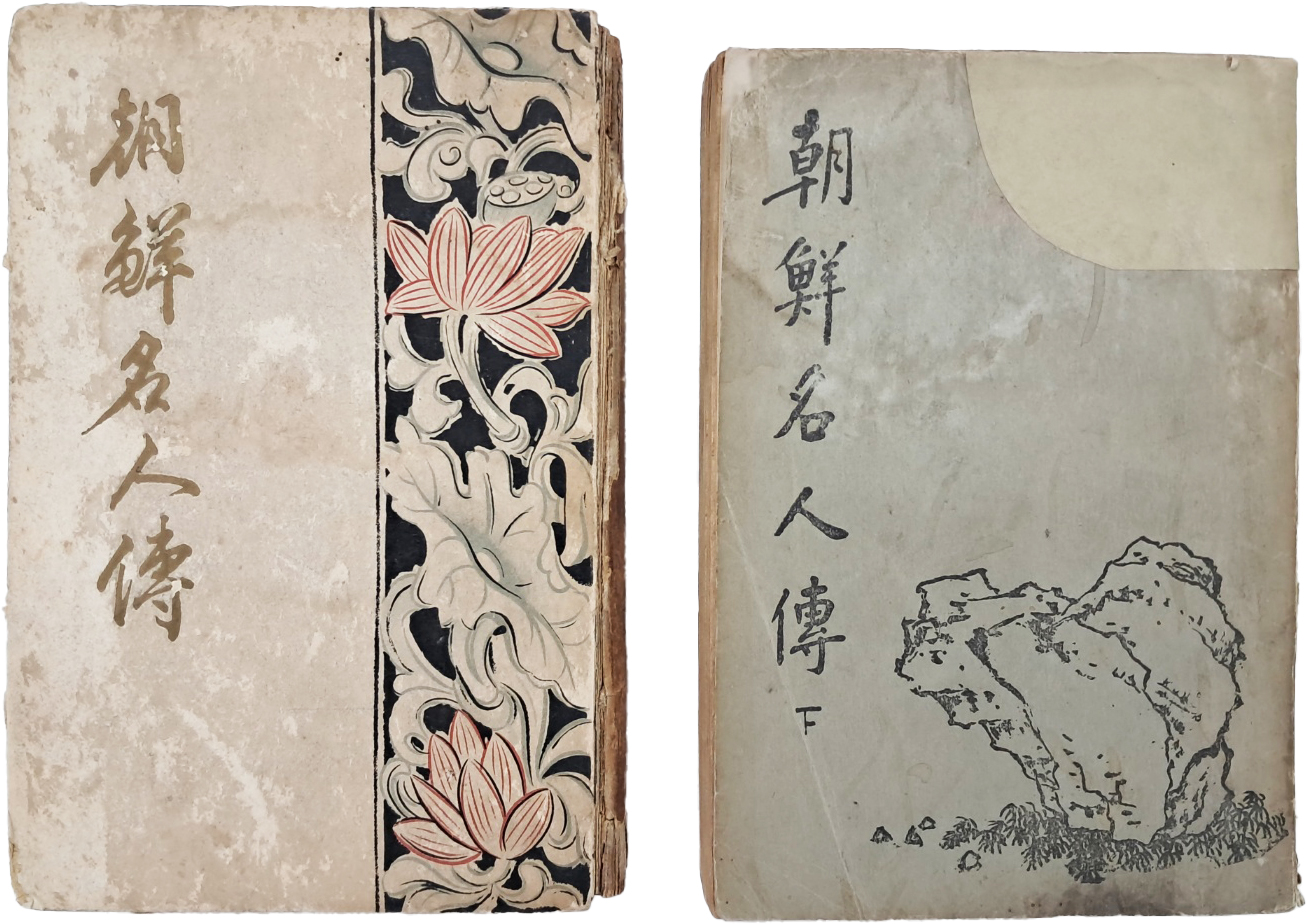 朝鮮名人傳
朝鮮名人傳 下